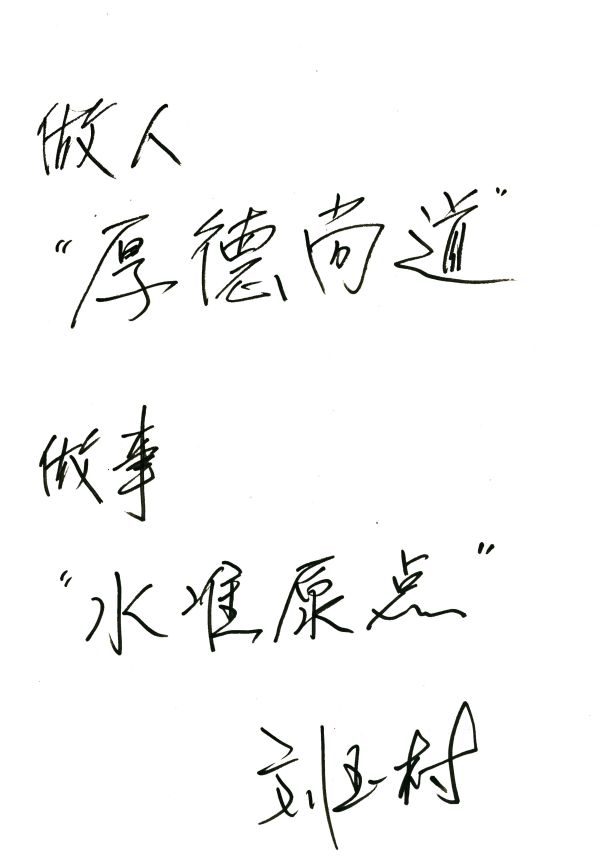 做人
“厚德尚道”
做事
“水准原点”
刘玉村